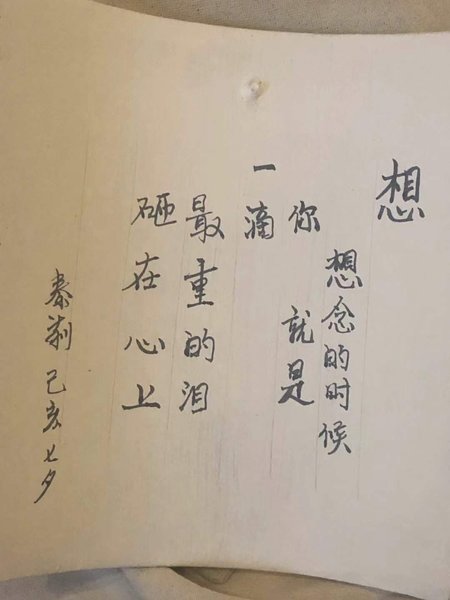 想
想念的时候
你 就是
一滴
最重的泪
砸在心上
秦荆 己亥七夕